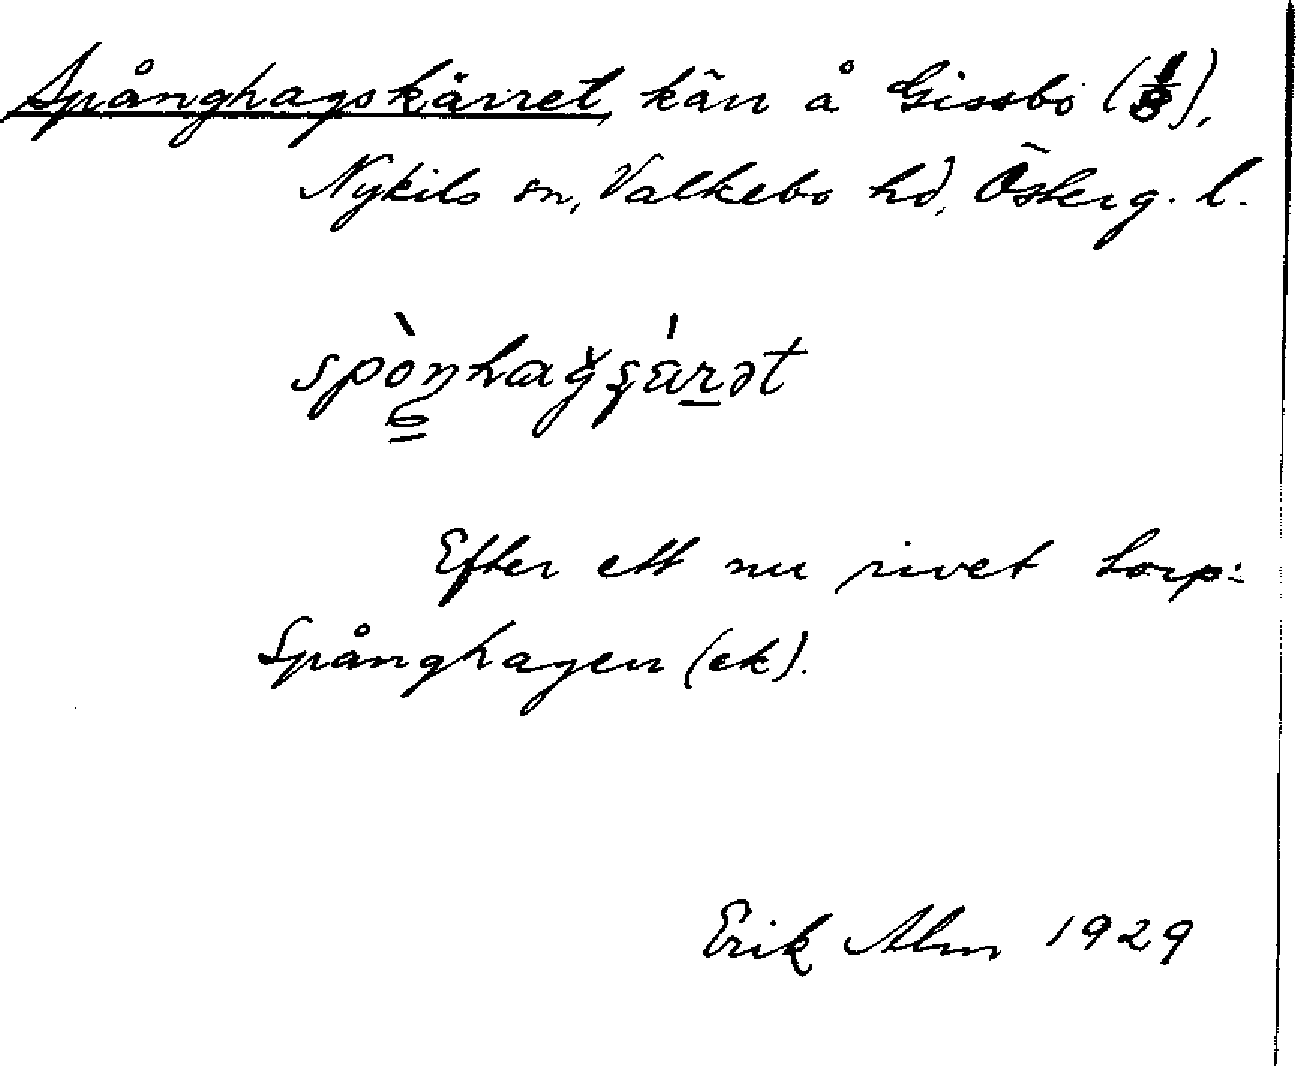 Spånghagskärret, kärr å Gissbo (1/8),
Nykils sn, Valkebo hd, Österg. l.
Efter ett nu rivet torp:
Spånghagen (ek).
Erik Alm 1929